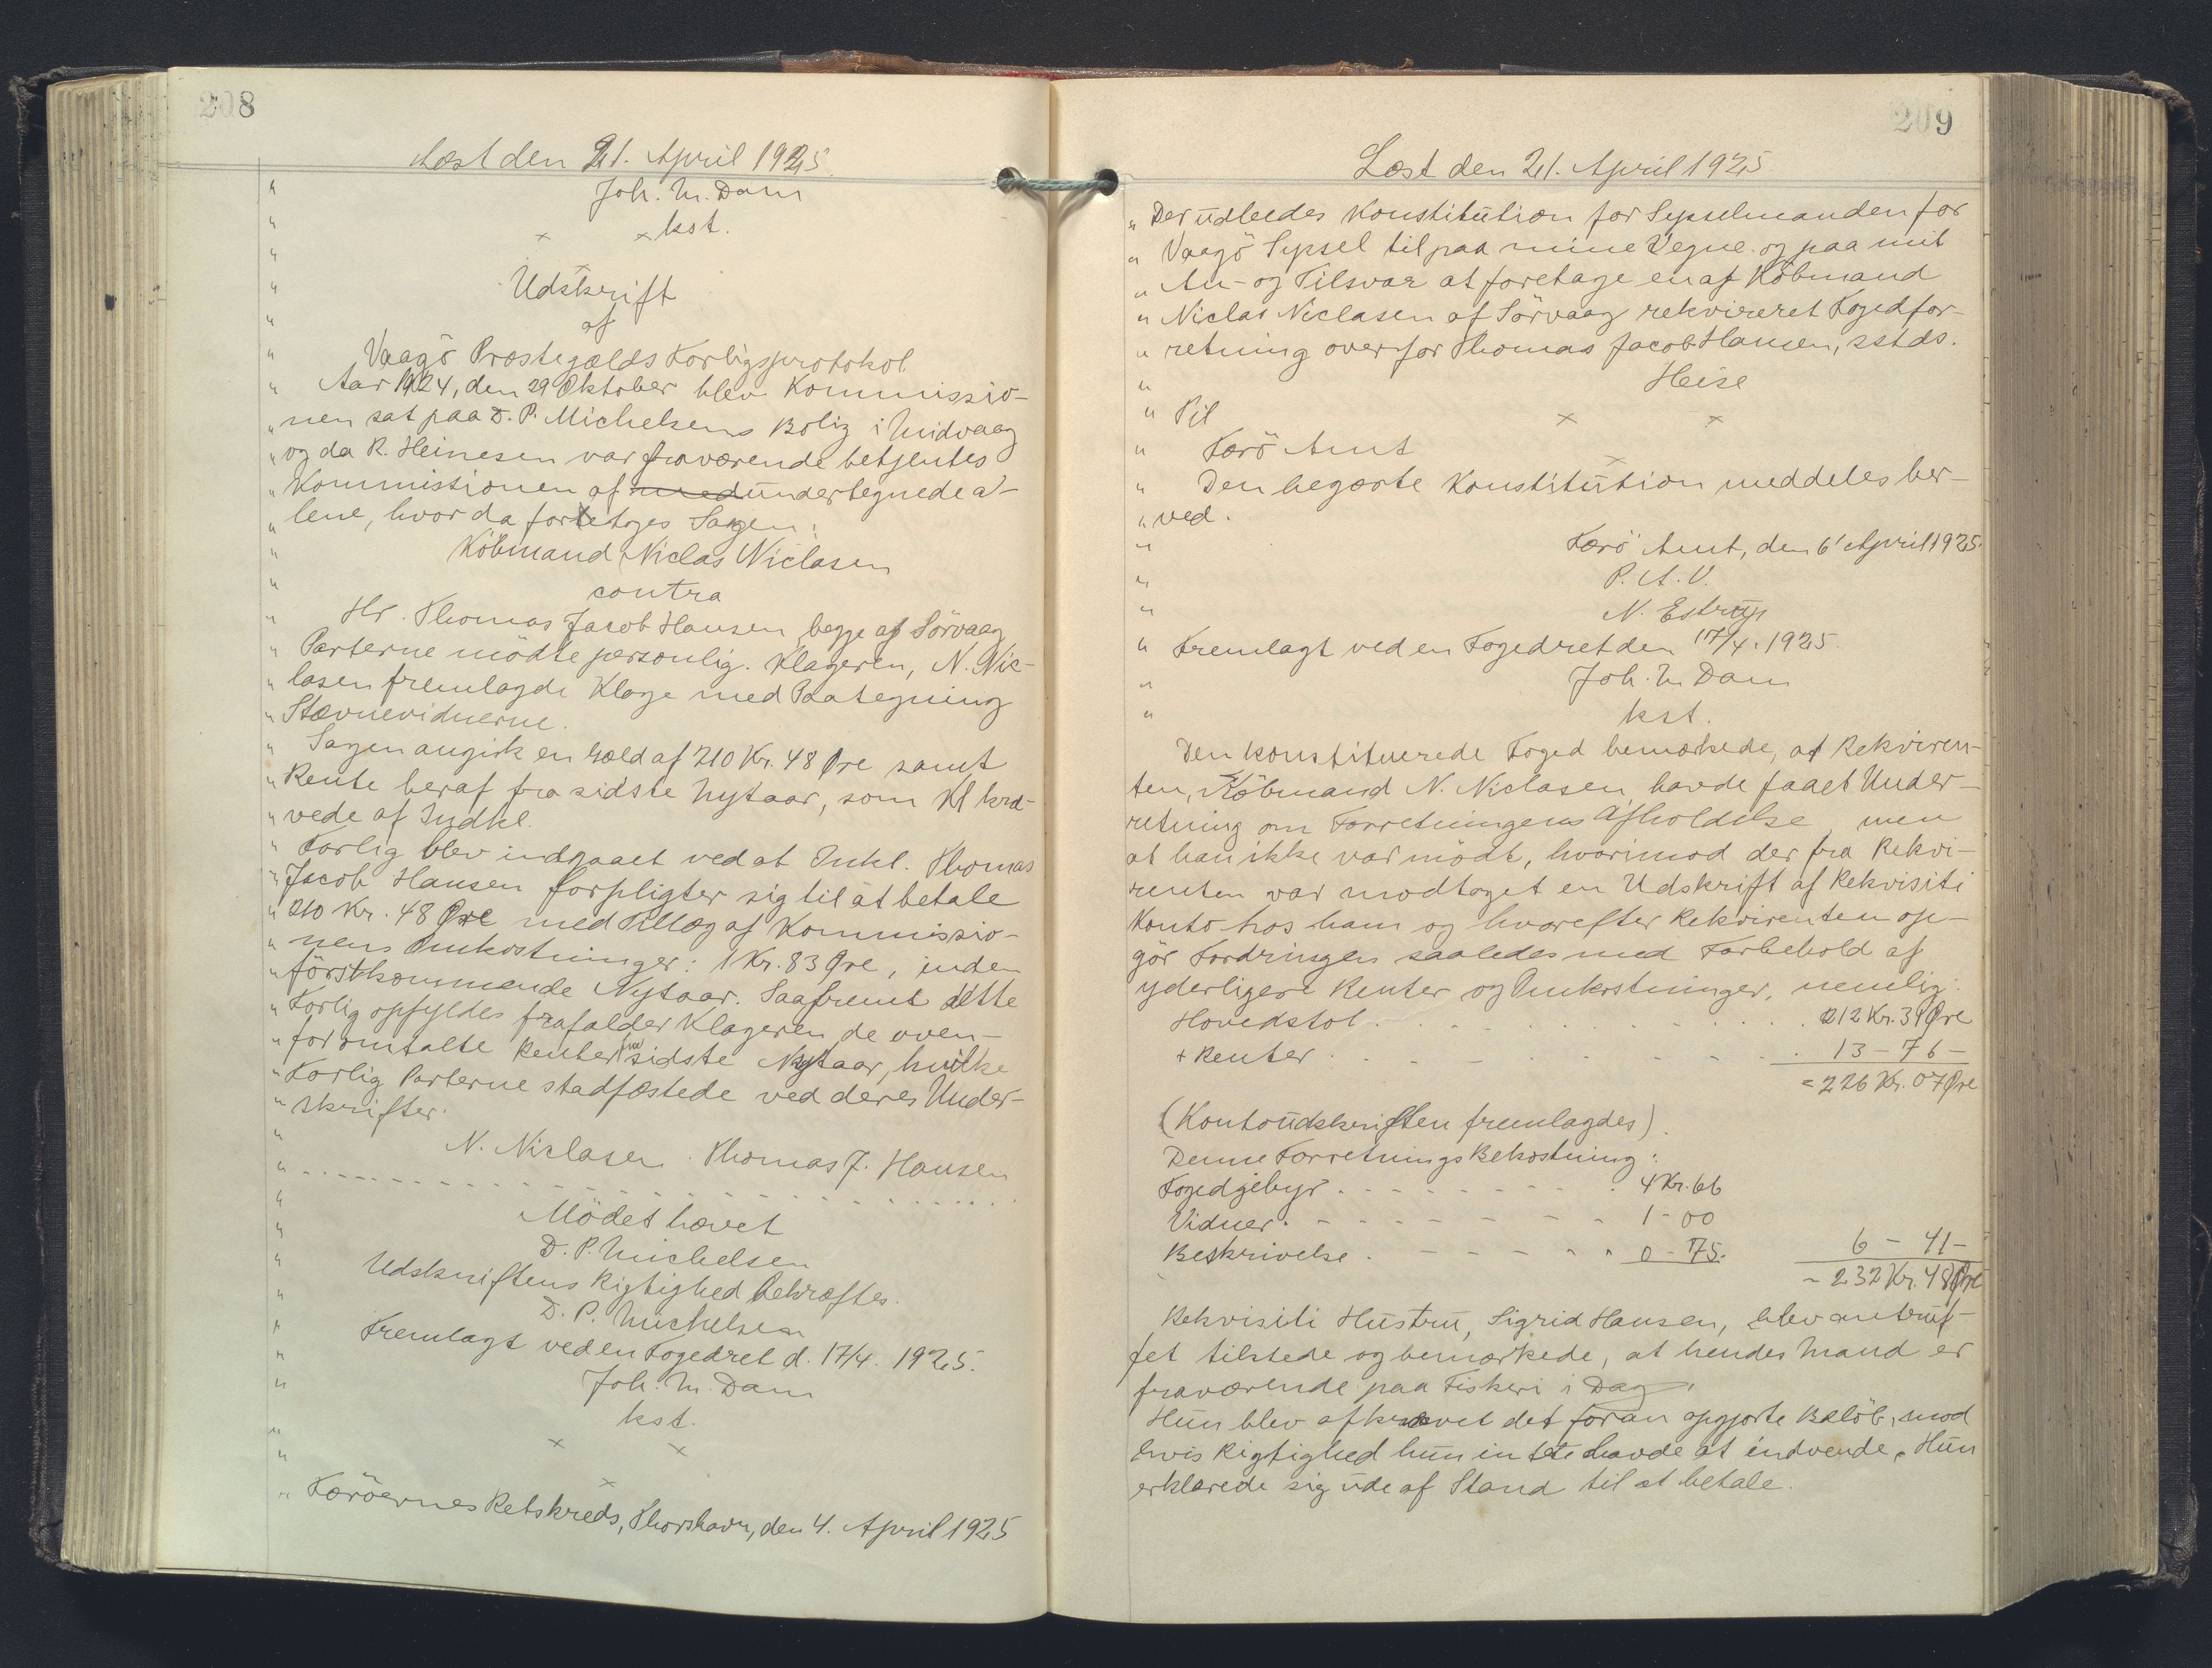 208
Læst den 21. April 1925.
" Joh. M. Dam
" kst.
" × ×
" ×
" Udskrift
" af
" Vaagö Præstegælds Forligsprotokol
" Aar 1924, den 29 Oktober blev Kommissio-
" nen sat paa D. P. Michelsens Bolig i Midvaag
" og da R. Heinesen var fraværende betjentes
" Kommissionen af med undertegnede a-
" lene, hvor da foretoges Sagen:
" Köbmand Niclas Niclasen
" contra
" Hr. Thomas Jacob Hansen begge af Sörvaag
" Parterne mödte personlig. Klageren, N. Nic-
" lasen fremlagde Klage med Paategning
" Stævnevidnerne.
" Sagen angik en Gæld af 210 Kr. 48 Øre samt
" Rente heraf fra sidste Nytaar, som Kl kræ-
" vede af Indkl.
" Forlig blev indgaaet ved at Inkl. Thomas
" Jacob Hansen forpligter sig til at betale
" 210 Kr. 48 Øre med Tillæg af Kommissio-
" nens Omkostninger: 1 Kr. 83 Øre, inden
" förstkommende Nytaar. Saafremt dette
" Forlig opfyldes frafalder Klageren de oven-
" for omtalte Renter fra sidste Nytaar, hvilke
" Forlig Parterne stadfæstede ved deres Under-
" skrifter.
" N. Niclasen. Thomas J. Hansen
" - - - - - - - - - - - - - - - - - - - -
" Mödet hævet
" D. P. Michelsen
" Udskriftens Rigtighed bekræftes.
" D. P. Michelsen
" Fremlagt ved en Fogedret d. 17/4. 1925.
" Joh. M. Dam
" kst.
" × ×
" ×
" Færöernes Retskreds, Thorshavn, den 4. April 1925
209
Læst den 21. April 1925.
" Der udbedes Konstitution for Sysselmanden for
" Vaagö Syssel til paa mine Vegne og paa mit
" An- og Tilsvar at foretage en af Köbmand
" Niclas Niclasen af Sörvaag rekvireret Fogedfor-
" retning overfor Thomas Jacob Hansen, sstds.
" Heise
" Til × ×
" Færö Amt ×
" Den begærte Konstitution meddeles her-
" ved.
" Færö Amt, den 6' April 1925.
" P. A. V.
" N. Estrup
" Fremlagt ved en Fogedret den 17/4. 1925.
" Joh. M Dam
" kst.
Den konstituerede Foged bemærkede, at Rekviren-
ten, Köbmand N. Niclasen, havde faaet Under-
retning om Forretningens Afholdelse men
at han ikke var mödt, hvorimod der fra Rekvi-
renten var modtaget en Udskrift af Rekvisiti
Konto hos ham og hvorefter Rekvirenten op-
gör Fordringen saaledes med Forbehold af
yderligere Renter og Omkostninger, nemlig:
Hovedstol . - - - - - - . 212 Kr. 31 Øre
+ Renter . - - - - - - . 13 - 76 -
= 226 Kr. 07 Øre
(Kontoudskriften fremlagdes).
Denne Forretnings Bekostning:
Fogedgebyr . - - - - - . 4 Kr. 66
Vidner . - - - - - - - 1 - 00
Beskrivelse . - - - - - 0 - 75. 6 - 41 -
= 232 Kr. 48 Øre
Rekvisiti Hustru, Sigrid Hansen, blev antruf-
fet tilstede og bemærkede, at hendes Mand er
fraværende paa Fiskeri i Dag.
Hun blev afkrævet det foran opgjorte Belöb, mod
hvis Rigtighed hun intet havde at indvende. Hun
erklærede sig ude af Stand til at betale.